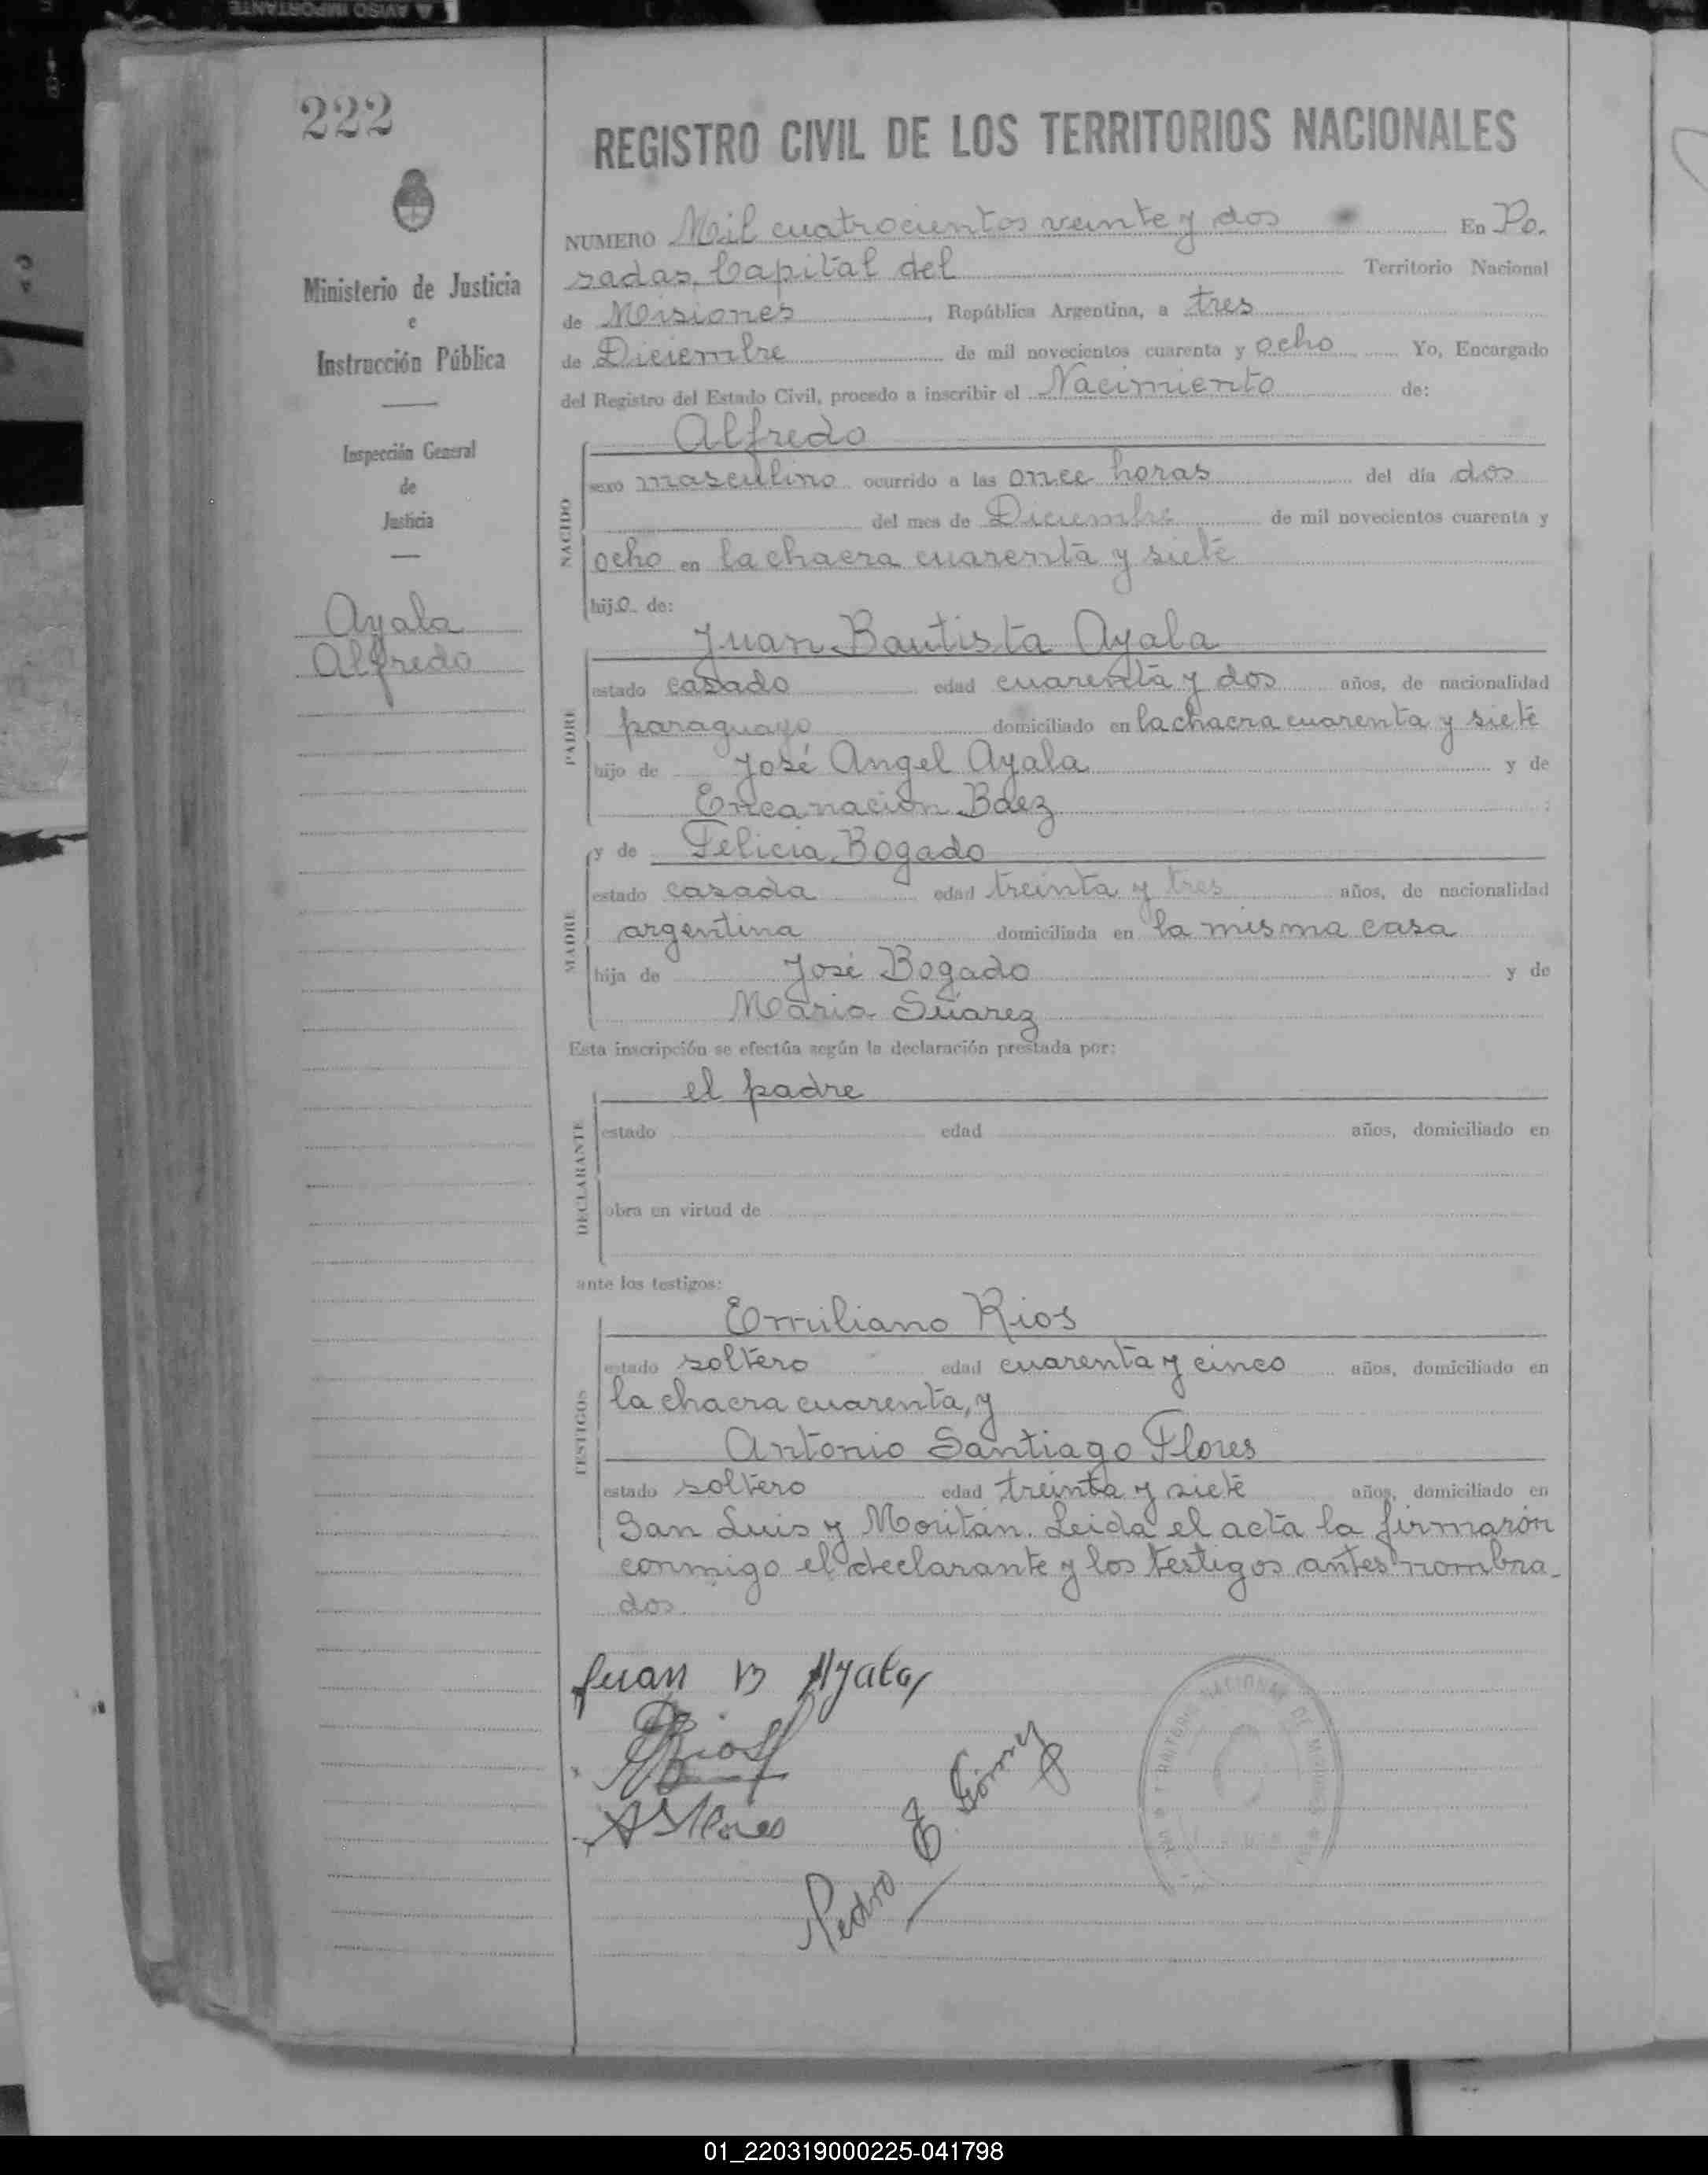 AVISO IMPORTANTE
222
REGISTRO CIVIL DE LOS TERRITORIOS NACIONALES
Ministerio de Justicia
e
Instrucción Pública
Inspección General
de
Justicia
Ayala
Alfredo
NUMERO Mil cuatrocientos veinte y dos En Po-
sadas, Capital del Territorio Nacional
de Misiones, República Argentina, a tres
de Diciembre de mil novecientos cuarenta y ocho Yo, Encargado
del Registro del Estado Civil, procedo a inscribir el Nacimiento de:
NACIDO
Alfredo
sexo masculino ocurrido a las once horas del día dos
del mes de Diciembre de mil novecientos cuarenta y
ocho en la chacra cuarenta y siete
hijo de:
PADRE
Juan Bautista Ayala
estado casado edad cuarenta y dos años, de nacionalidad
paraguayo domiciliado en la chacra cuarenta y siete
hijo de José Angel Ayala y de
Encanación Báez
MADRE
y de Felicia Bogado
estado casada edad treinta y tres años, de nacionalidad
argentina domiciliada en la misma casa
hija de José Bogado y de
María Suarez
Esta inscripción se efectúa según la declaración prestada por:
DECLARANTE
el padre
estado edad años, domiciliado en
obra en virtud de
ante los testigos:
TESTIGOS
Emiliano Rios
estado soltero edad cuarenta y cinco años, domiciliado en
la chacra cuarenta, y
Antonio Santiago Flores
estado soltero edad treinta y siete años, domiciliado en
San Luis y Moritán. Leida el acta la firmaron
conmigo el declarante y los testigos antes nombra-
dos.
Juan B Ayala
ERios
A S Flores
Pedro E Gómez
TERRITORIO NACIONAL DE MISIONES
01_220319000225-041798